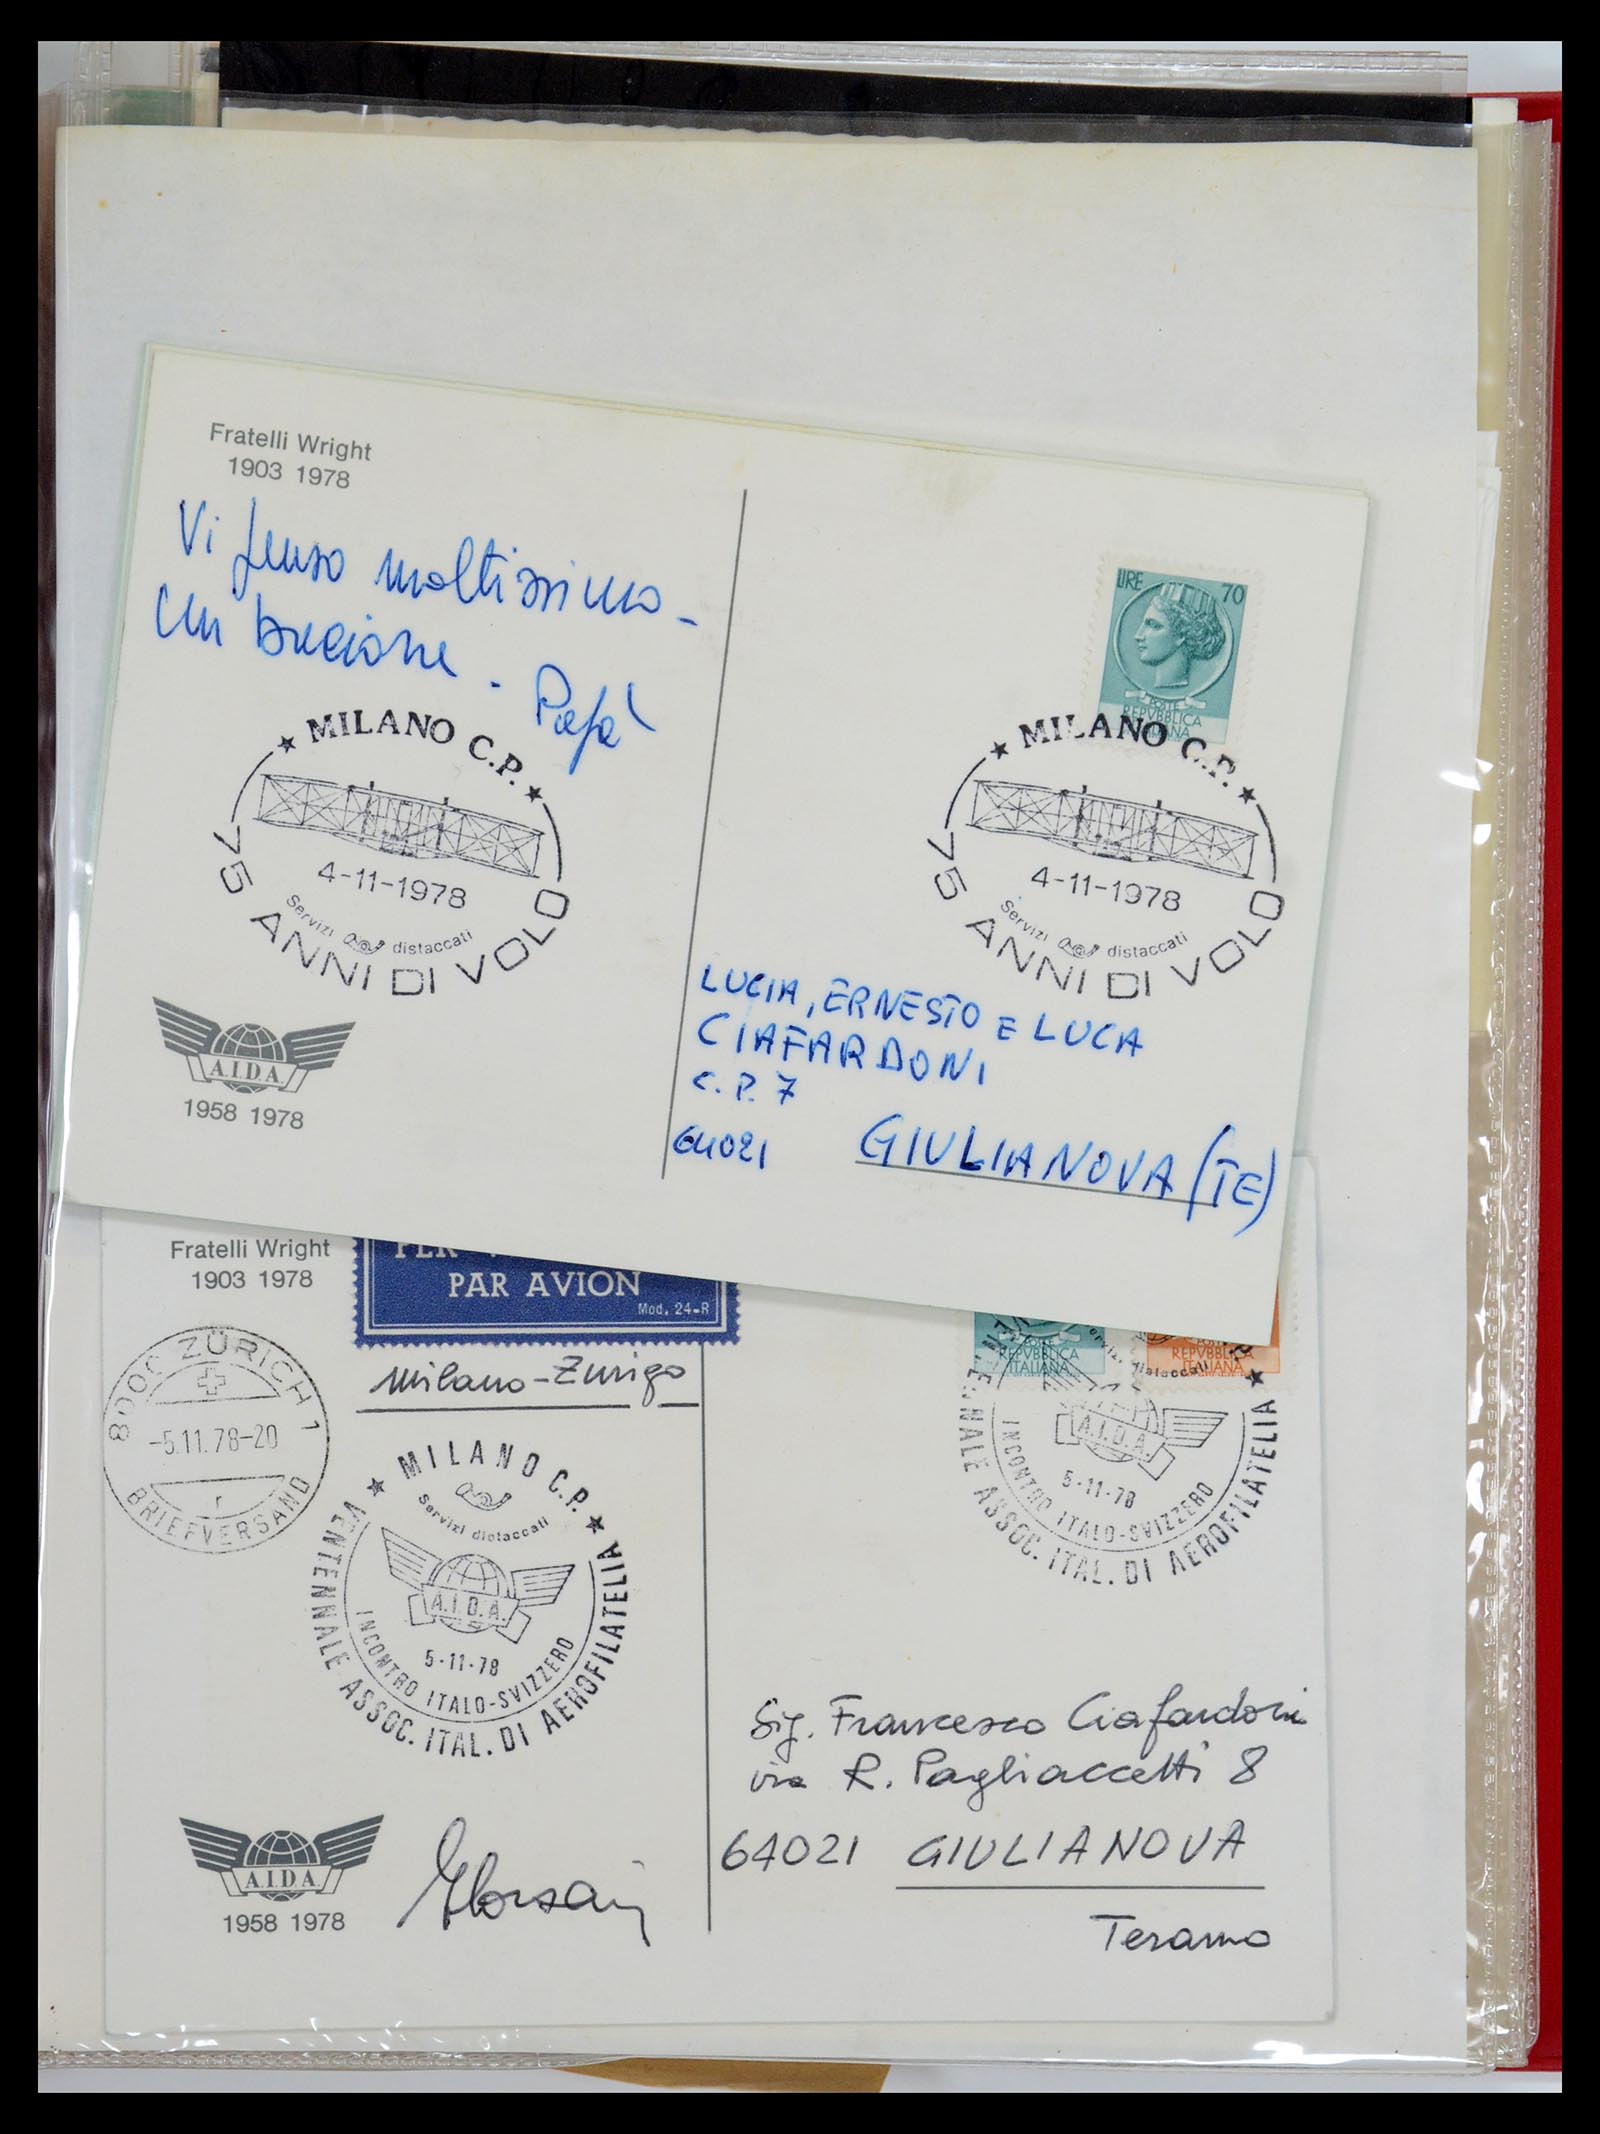 Fratelli Wright
1903 1978
Vi penso moltissimo -
Un bacione. Papà
★ MILANO C.P. ★
4-11-1978
Servizi distaccati
75 ANNI DI VOLO
A.I.D.A.
1958 1978
LIRE 70
POSTE
REPVBBLICA
★ MILANO C.P. ★
4-11-1978
Servizi distaccati
75 ANNI DI VOLO
LUCIA, ERNESTO E LUCA
CIAFARDONI
C.P. 7
64021 GIULIANOVA (TE)
Fratelli Wright
1903 1978
PAR AVION
Mod. 24-R
Milano-Zurigo
8000 ZÜRICH 1
-5.11.78-20
r
BRIEFVERSAND
★ MILANO C.P. ★
Servizi distaccati
A.I.D.A.
5-11-78
INCONTRO ITALO-SVIZZERO
VENTENNALE ASSOC. ITAL. DI AEROFILATELIA
A.I.D.A.
1958 1978
POSTE
REPVBBLICA
ITALIANA
REPVBBLICA
ITALIANA
distaccati
A.I.D.A.
5-11-78
INCONTRO ITALO-SVIZZERO
ASSOC. ITAL. DI AEROFILATELIA ★
Sig. Francesco Ciafardoni
via R. Pagliaccetti 8
64021 GIULIANOVA
Teramo